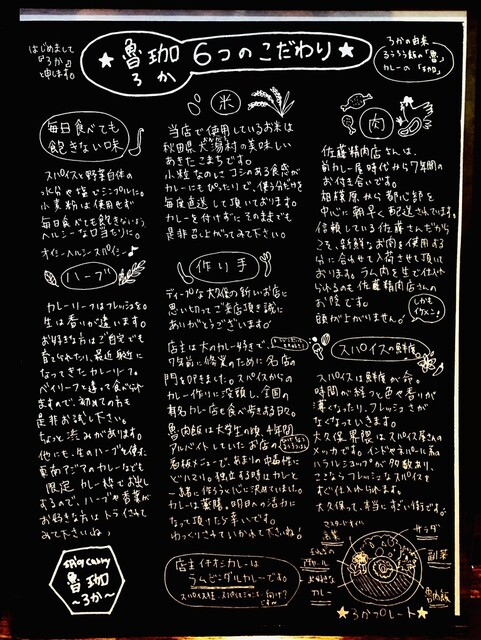 はじめまして
『ろか』
と申します。
★魯珈 6つのこだわり★
ろか
ろかの由来
るうろう飯の「魯」
カレーの「珈」
毎日食べても
飽きない味
スパイスと野菜自体の
水分や塩でシンプルに。
小麦粉は使用せず
毎日食べても飽きないよう
ヘルシーな口当たりに。
オイシーヘルシースパイシー♪
ハーブ
カレーリーフはフレッシュを。
生は香りが違います。
お好きな方はご自宅でも
育てられたり、最近身近に
なってきたカレーリーフ。
ベイリーフと違って食べられ
ますので、初めての方も
是非お試し下さい。
ちょっと渋みがあります。
他にも、生のハーブを使った
東南アジアのカレーなども
限定カレー枠でお出し
するので、ハーブや香草が
お好きな方はトライさせて
みて下さいね♪
spicy curry
魯珈
～ろか～
米
当店で使用しているお米は
秋田県大潟村の美味しい
あきたこまちです。
小粒なのにコシのある食感が
カレーにもぴったりで、使う分だけを
毎度直送して頂いております。
カレーを付けずにそのままでも
是非召し上がってみて下さい。
作り手
ディープな大久保の新しいお店に
思い切ってご来店頂き誠に
ありがとうございます!
店主は大のカレー好きで、
7年前に修業のために名店の
門を叩きました。スパイスからの
カレー作りに没頭し、全国の
有名カレー店を食べ歩きする日々。
魯肉飯は大学生の頃、4年間
アルバイトしていたお店の
看板メニューで、あまりの中毒性に
ドハマリ。独立する時はカレーと
一緒に作ろうと心に決めていました。
カレーは薬膳。明日への活力に
なって頂けたら幸いです。
ゆっくりさせていかれて下さいね!
店主イチオシカレーは
ラムビンダルカレーです。
肉
佐藤精肉店さんは、
前カレー屋時代から7年間の
お付き合いです。
相模原から都心部を
中心に朝早く配送されています。
信頼している佐藤さんだから
こそ、新鮮なお肉を使用する
分に合わせて入荷させて頂いて
おります。ラム肉を生で仕入れ
られるのも佐藤精肉店さんの
お陰です。
頭が上がりません!
しかも
イケメン!
スパイスの鮮度
スパイスは鮮度が命。
時間が経つと色や香りが
薄くなったり、フレッシュさが
なくなっていきます。
大久保界隈はスパイス屋さんの
メッカです。インドやネパール系の
ハラルショップが多数あり、
いつでもフレッシュなスパイスを
すぐ仕入れられます。
大久保って、本当にすごい街です。
サラダ
副菜
魯肉飯
お好きな
カレー
★ろかプレート★